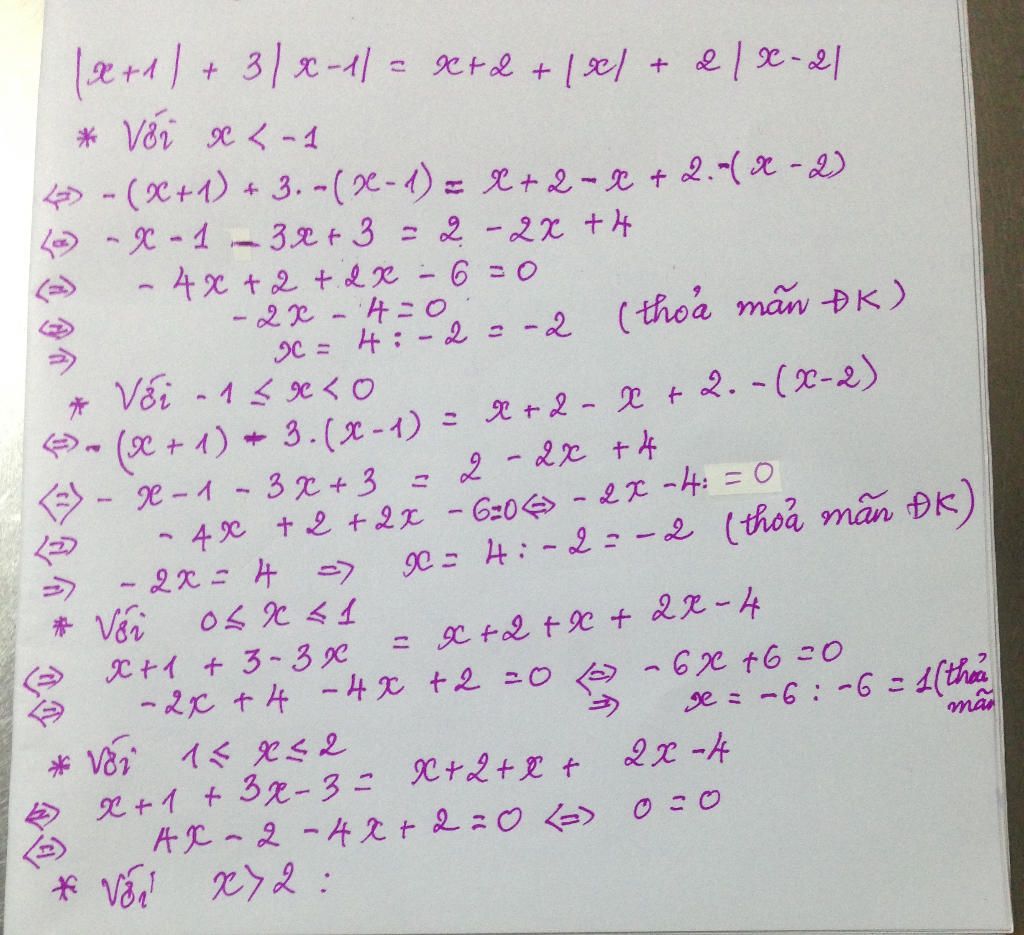 |x+1| + 3|x-1| = x+2 + |x| + 2|x-2|
* Với x < -1
<=> -(x+1) + 3.-(x-1) = x+2-x + 2.-(x-2)
<=> -x-1 - 3x+3 = 2 - 2x + 4
<=> - 4x + 2 + 2x - 6 = 0
<=> - 2x - 4 = 0
=> x = 4 : -2 = -2 (thoả mãn ĐK)
* Với -1 ≤ x < 0
<=> -(x+1) - 3.(x-1) = x+2 - x + 2.-(x-2)
<=> - x-1 - 3x+3 = 2 - 2x + 4
<=> - 4x + 2 + 2x - 6=0 <=> - 2x - 4 = 0
=> - 2x = 4 => x = 4 : -2 = -2 (thoả mãn ĐK)
* Với 0 ≤ x ≤ 1
<=> x+1 + 3-3x = x+2+x + 2x-4
<=> -2x + 4 - 4x + 2 = 0 <=> - 6x + 6 = 0
=> x = -6 : -6 = 1 (thoả mãn
* Với 1 ≤ x ≤ 2
<=> x+1 + 3x-3 = x+2+x + 2x-4
<=> 4x - 2 - 4x + 2 = 0 <=> 0 = 0
* Với x > 2 :